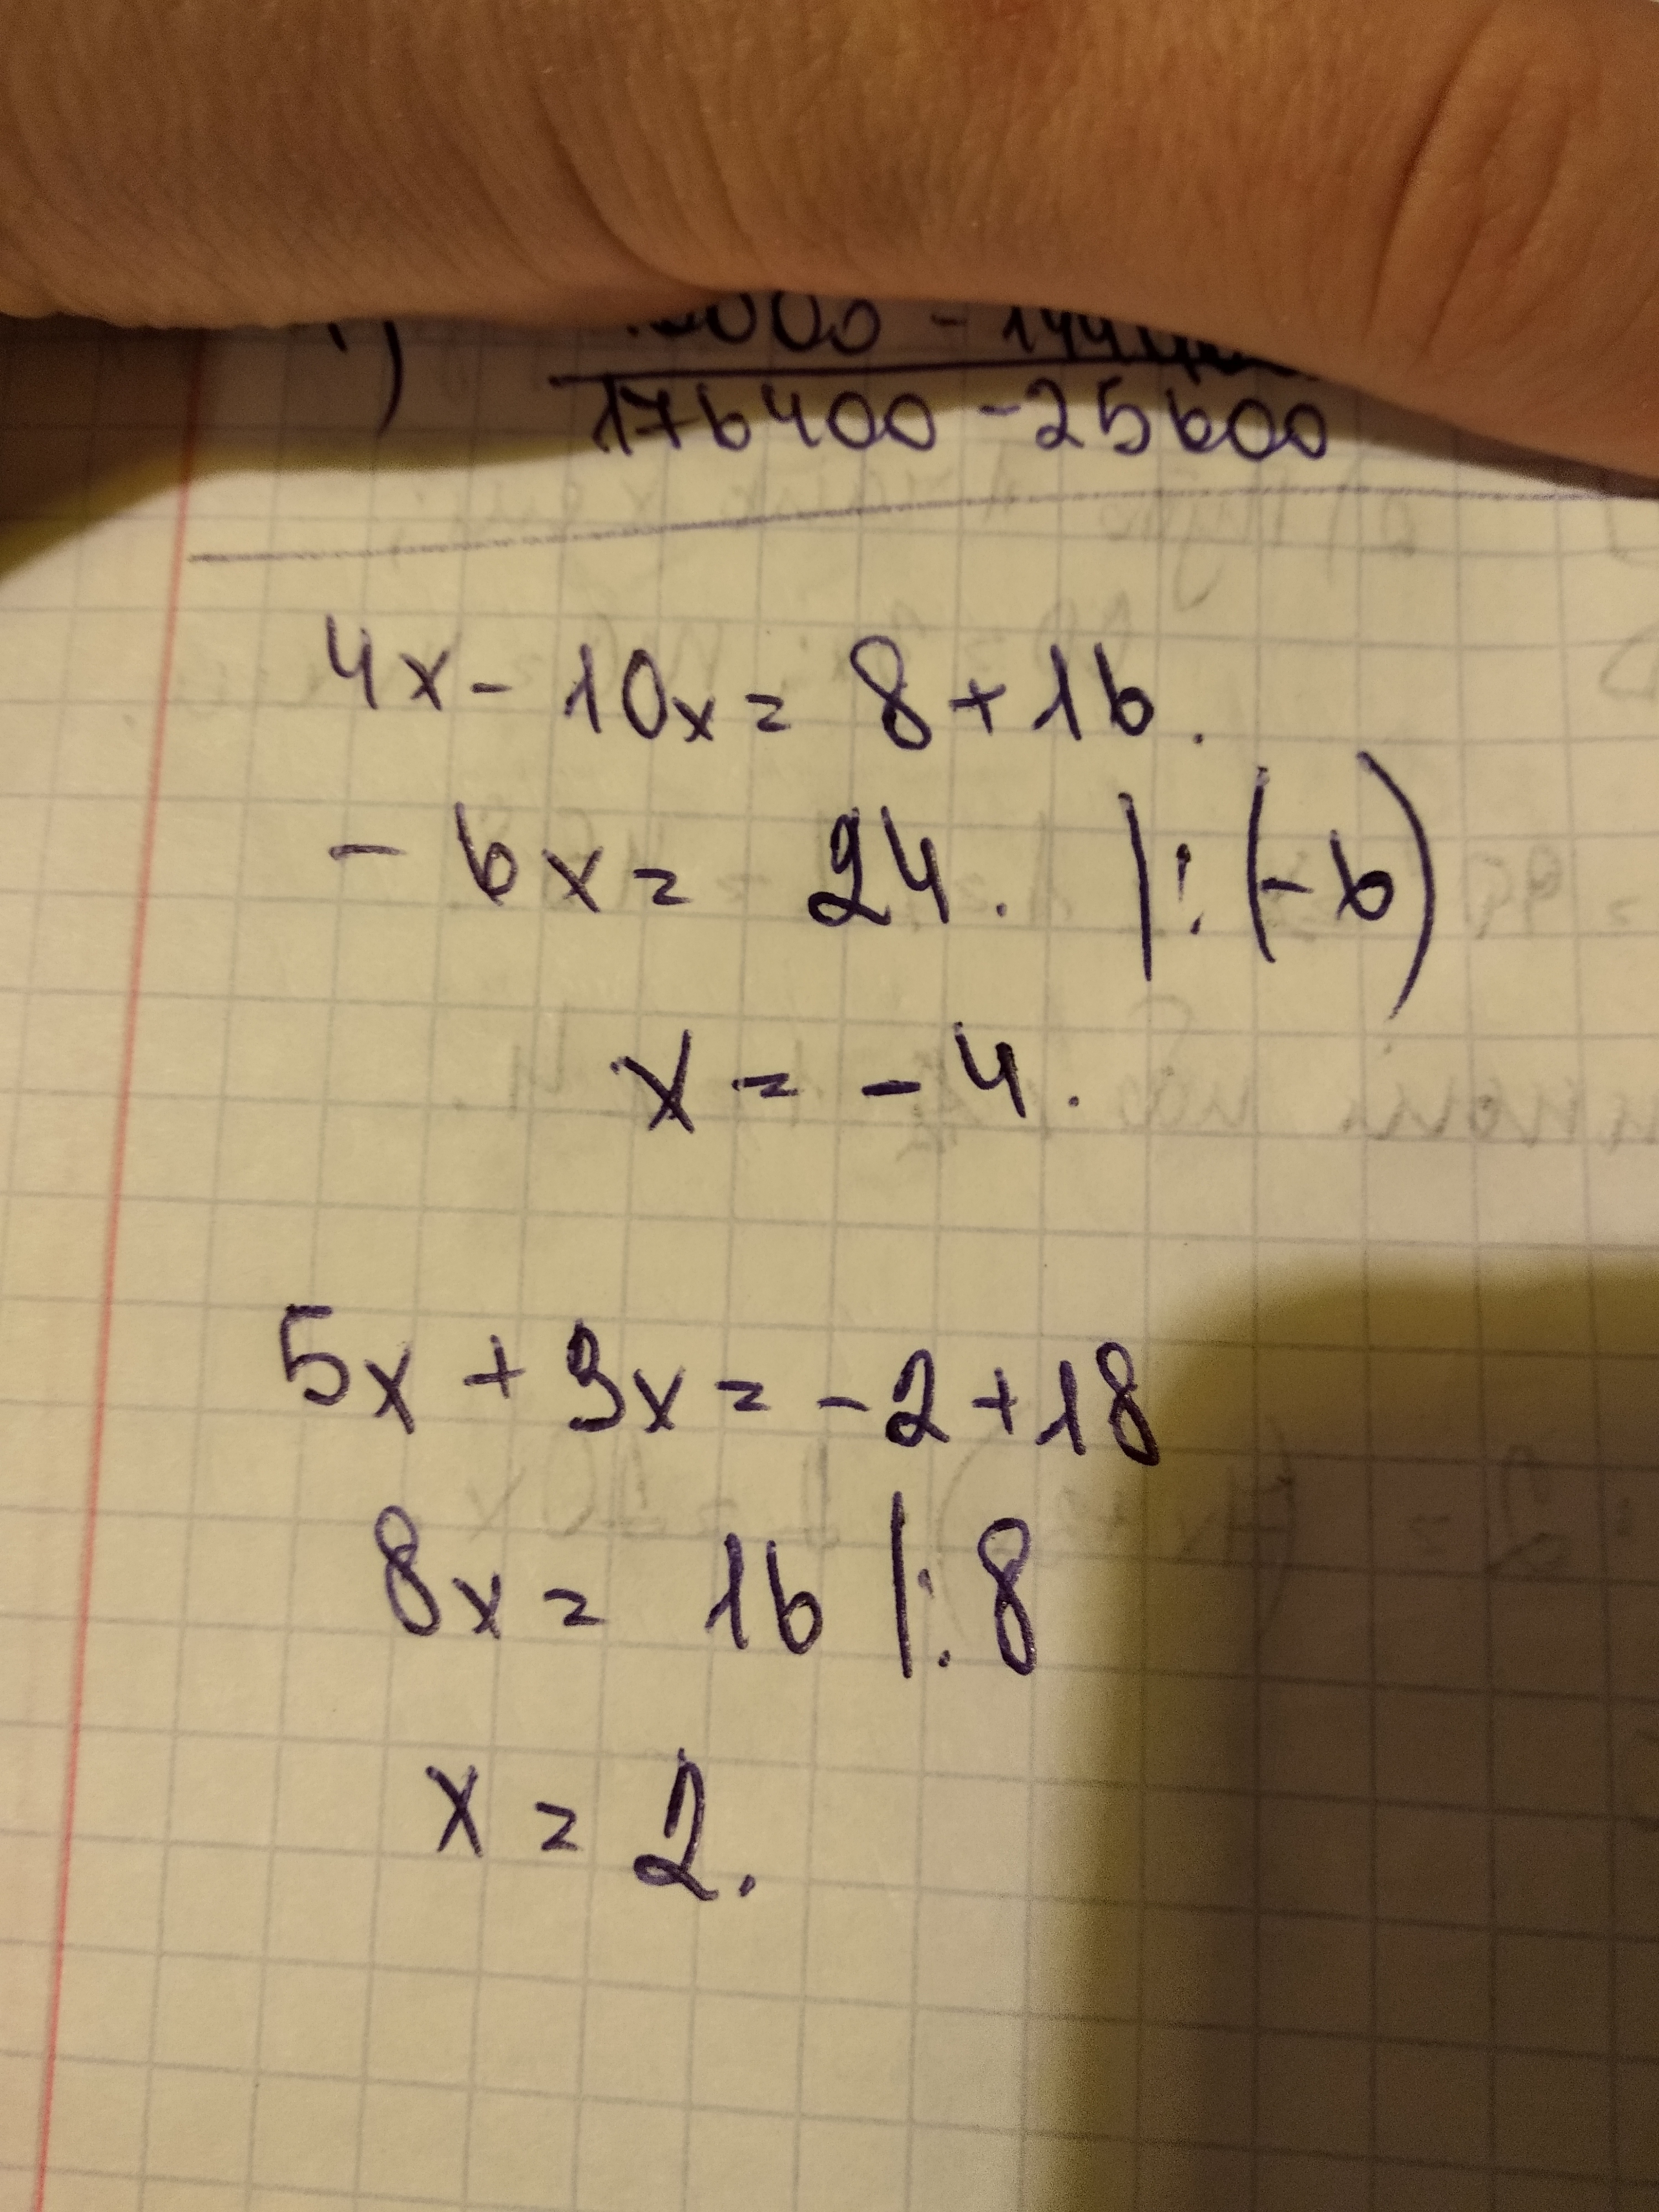 000 - 144
176400 - 25600
4x - 10x = 8 + 16.
- 6x = 24. |: (-6)
x = - 4.
5x + 3x = - 2 + 18
8x = 16 |: 8
x = 2.